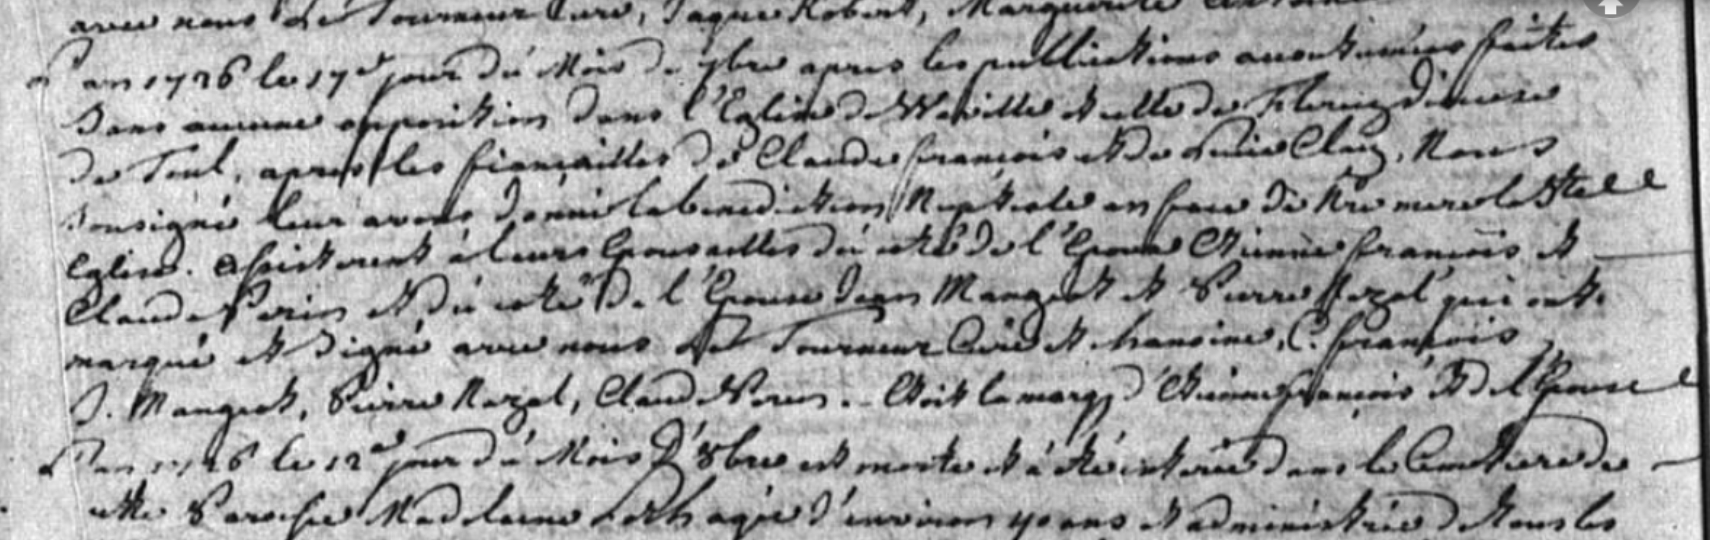 avec nous Le Tourneur Curé, Jaque Robert, Marguerite
L'an 1726 le 17e jour du Mois de 7bre apres les publications accoutumées faites
sans aucune opposition dans l'Eglise de Waville et celle de Flerey diocese
de Toul, apres les fiançailles de Claude françois et de Claug, Nous
sousigné leur avons donné la benediction Nuptiale en face de Nre mere la Ste
Eglise. assisterent à leurs Epousailles du coté de l'Epoux Etienne françois et
Claude Perin et du coté de l'Epouse Jean Mangeot et Pierre Nazal qui ont
marqué et signé avec nous Le Tourneur Curé et chanoine, C. françois
J. Mangeot, Pierre Nazal, Claude Perin. Etoit la marq d'Etienne françois et de l'Epouse
L'an 1726 le 12e jour du Mois d'8bre est morte et a été enterrée dans le Cemetiere de
cette Paroisse Madeleine agée d'environ 40 ans et administrée de tous les